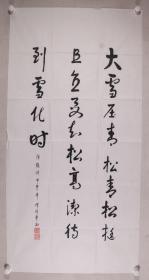 大雪压青松青松挺
且直要知松高洁待
到雪化时